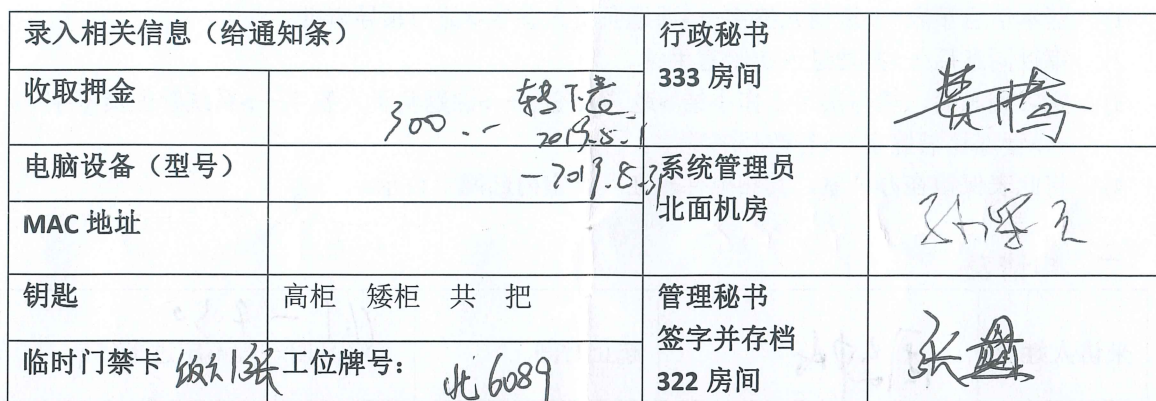 录入相关信息（给通知条）
行政秘书
333 房间
费腾
收取押金
300.-
2019.8.1
-2019.8.31
电脑设备（型号）
系统管理员
北面机房
MAC 地址
钥匙
高柜 矮柜 共 把
管理秘书
签字并存档
322 房间
张
临时门禁卡
1张
工位牌号：
北6089